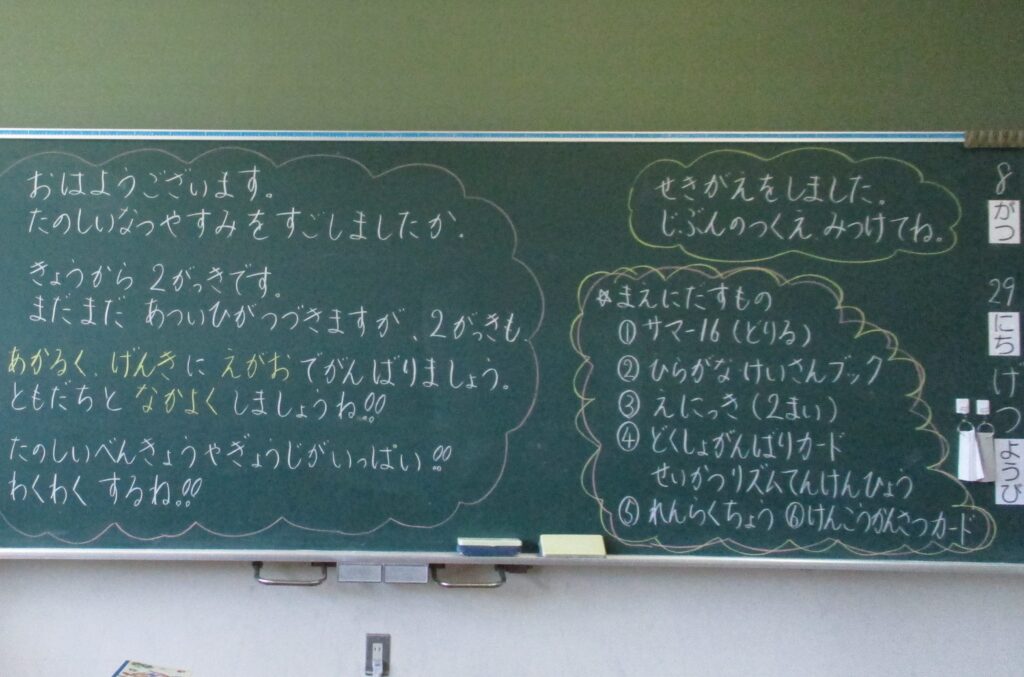 おはようございます。
たのしいなつやすみをすごしましたか。
きょうから2がっきです。
まだまだ あついひがつづきますが、2がっきも
あかるく、げんきに えがおでがんばりましょう。
ともだちと なかよくしましょうね!!
たのしいべんきょうやぎょうじがいっぱい!!
わくわくするね!!
せきがえをしました。
じぶんのつくえ みつけてね。
☆まえにだすもの
①サマー16(どりる)
②ひらがなけいさんブック
③えにっき(2まい)
④どくしょがんばりカード
せいかつリズムてんけんひょう
⑤れんらくちょう ⑥けんこうかんさつカード
8がつ29にちげつようび